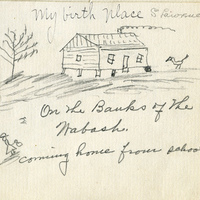 My birth place
On the Banks of The
Wabash.
coming home from school